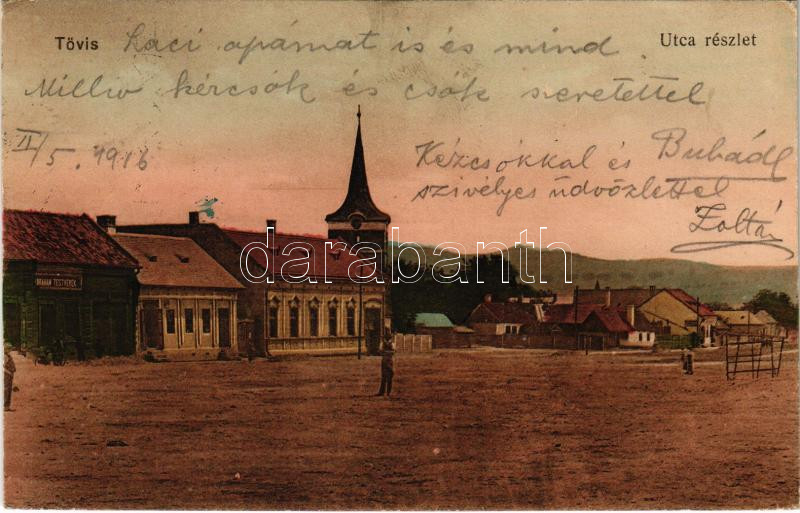 Tövis
Utca részlet
Laci apámat is és mind
Millió kézcsók és csók szeretettel
II/5. 1916
Kézcsókkal és
szivélyes üdvözlettel
Zoltán
TESTVÉREK
darabanth